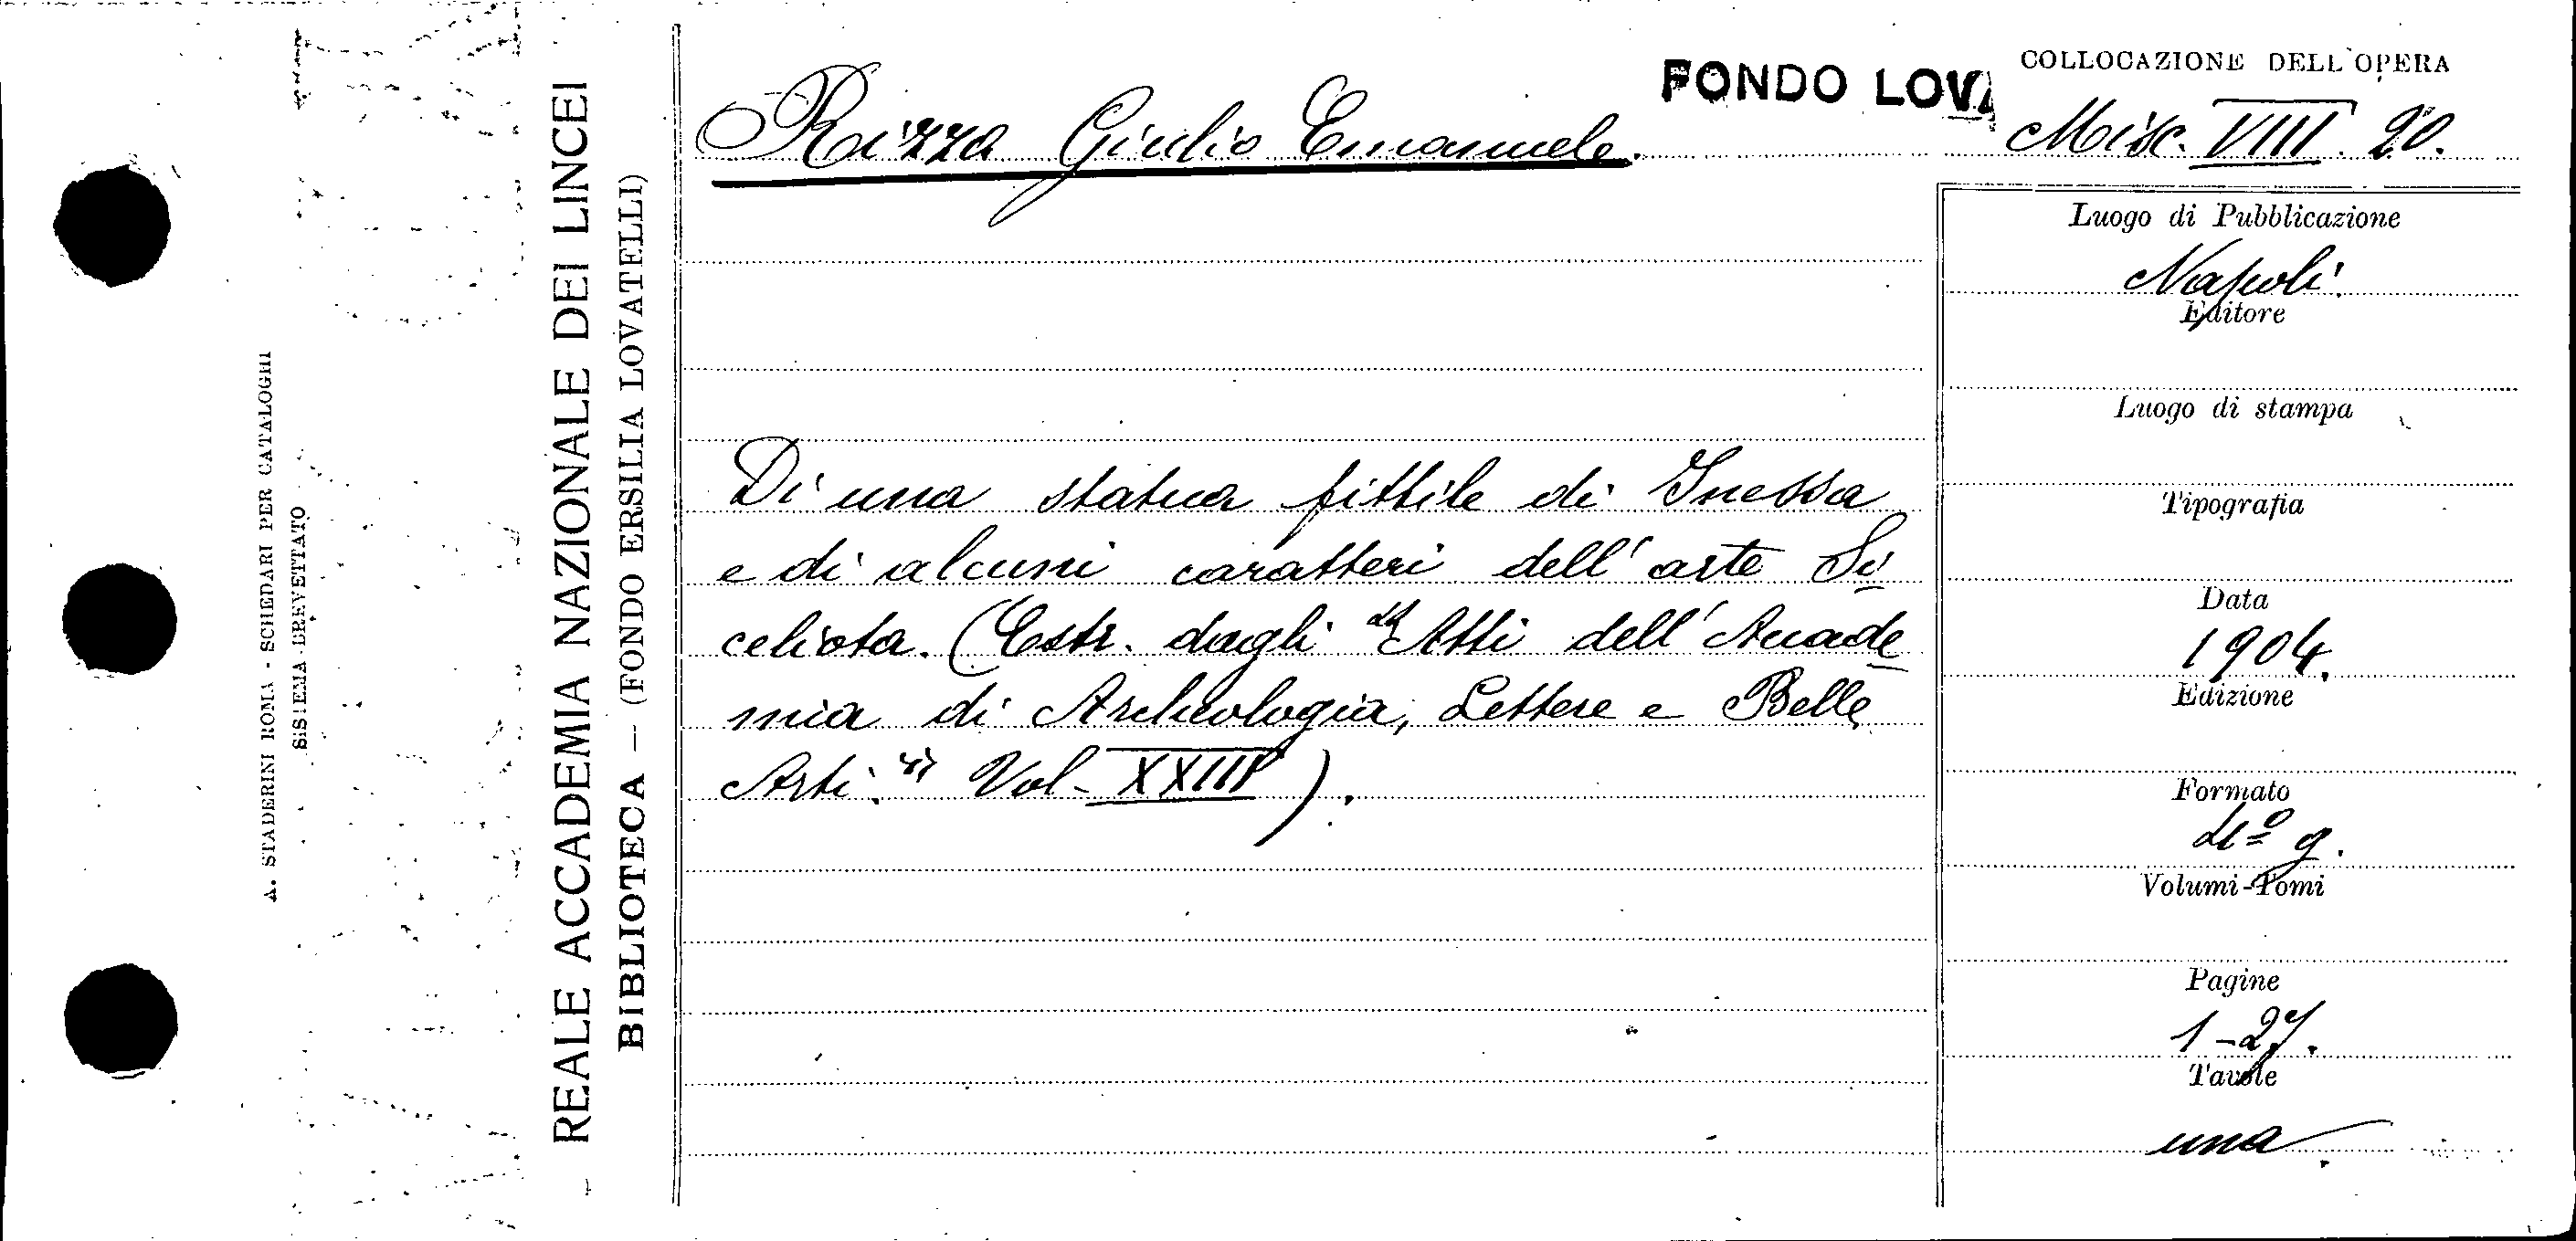 A. STADERINI ROMA - SCHEDARI PER CATALOGHI
SISTEMA BREVETTATO
REALE ACCADEMIA NAZIONALE DEI LINCEI
BIBLIOTECA — (FONDO ERSILIA LOVATELLI)
Rizza Giulio Emanuele.
FONDO LOVA
COLLOCAZIONE DELL'OPERA
Misc. VIII. 20.
Di una statua fittile di Inessa
e di alcuni caratteri dell'arte Si
celiota. (Estr. dagli "Atti dell'Accade
mia di Archeologia, Lettere e Belle
Arti." Vol- XXIII).
Luogo di Pubblicazione
Napoli.
Editore
Luogo di stampa
Tipografia
Data
1904.
Edizione
Formato
4º g.
Volumi-Tomi
Pagine
1-27.
Tavole
una